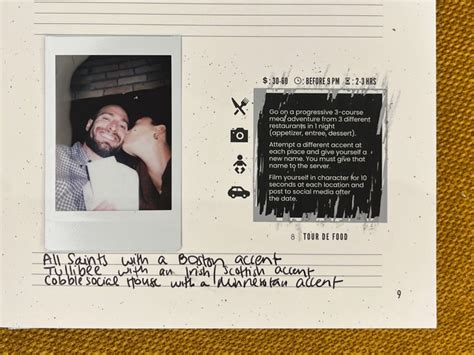 $ : 30-60 : BEFORE 9 PM : 2-3 HRS
Go on a progressive 3-course
meal adventure from 3 different
restaurants in 1 night
(appetizer, entree, dessert).
Attempt a different accent at
each place and give yourself a
new name. You must give that
name to the server.
Film yourself in character for 10
seconds at each location and
post to social media after
the date.
8 | TOUR DE FOOD
All Saints with a Boston accent
Tullibee with an Irish/Scottish accent
Cobble social House with a Minnesotan accent
9